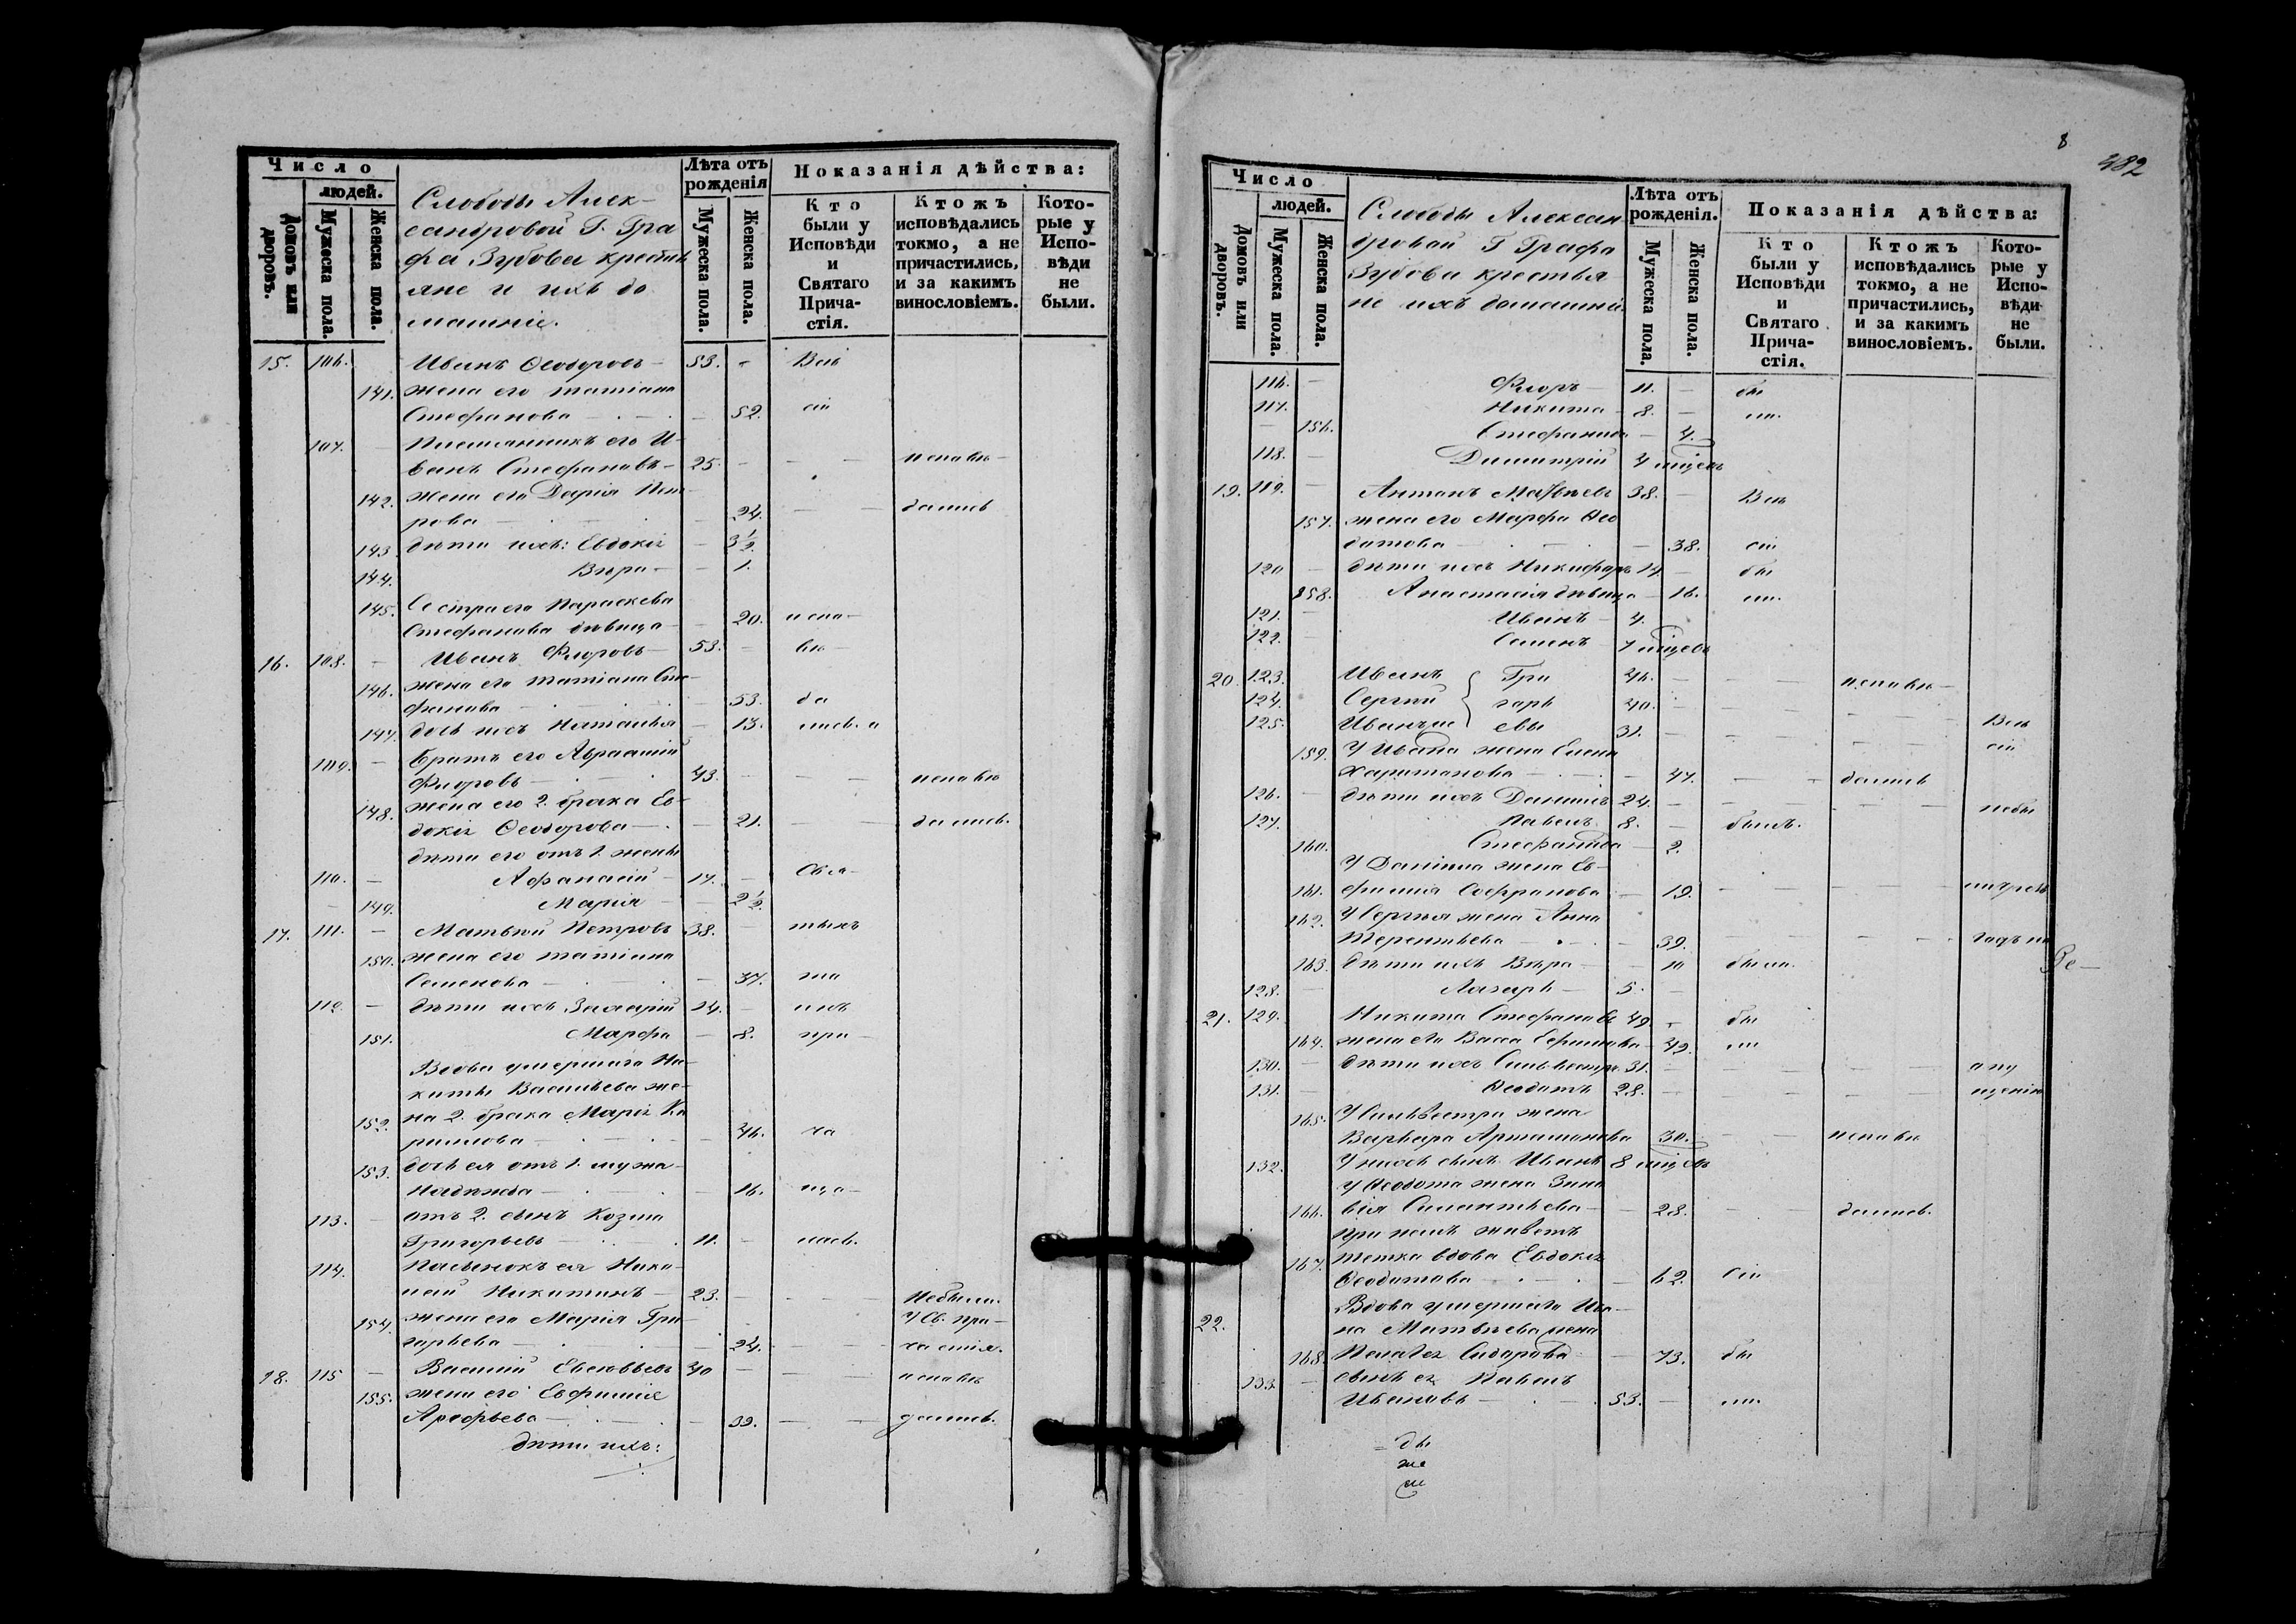 Число
людей.
Домовъ или дворовъ.
Мужеска пола.
Женска пола.
Слободы Алек-
сандровой Г. Гра
фа Зубова крестья
яне и ихъ до
машніе.
Лѣта отъ рожденія
Мужеска пола.
Женска пола.
Показанія дѣйства:
Кто были у Исповѣди и Святаго Причастія.
Ктожъ исповѣдались токмо, а не причастились, и за какимъ винословіемъ.
Которые у Исповѣди не были.
15. 106. Иванъ Ѳеодоровъ — 53. - Всѣ
141. жена его Татіана
Стефанова — 52. сіи
107. — Племянникъ его И-
ванъ Стефановъ — 25. — — — исповѣ-
142. жена его Дарія Пет-
рова — 24. — — дались
143. дѣти ихъ: Евдокія — 3½.
144. Вѣра — — 1.
145. Сестра его Параскева
Стефанова дѣвица — — 20. испо-
16. 108. — Иванъ Флоровъ — 53. — вѣ-
146. жена его Татіана Сте-
фанова — 53. да
147. дочь ихъ Наталья — 13. лись и
109. — Братъ его Авраамій
Флоровъ — 43. — — — исповѣ
148. жена его 2. брака Ев-
докія Ѳеодорова — 21. — — дались.
дѣти его отъ 1. жены
110. — Афанасій — 17. — Свя-
— 149. Марія — — 2½.
17. 111. — Матвей Петровъ 38. — тыхъ
150. жена его Татіана
Семенова — 37. та
112. — дѣти ихъ Захарій 14. — инъ
151. Марфа — 8. при-
Вдова умершаго Ни-
киты Васильева же-
152. на 2. брака Марія Ки
рилова — 46. ча
153. дочь ея отъ 1. мужа
Надежда — 16. ща-
113. — отъ 2. сынъ Козма
Григорьевъ — 11. — лись.
114. Пасынокъ ея Нико-
лай Никитинъ — 23. — — — Небыли
154. жена его Марія Гри- у Св. При-
горьева — 24. — — частія.
18. 115 — Василій Евсевьевъ 40 — — — исповѣ
155. жена его Евфимія
Арефьева — 39. — — дались.
дѣти ихъ:
8
482
Число
людей.
Домовъ или дворовъ.
Мужеска пола.
Женска пола.
Слободы Алексан
дровой Г Графа
Зубова крестья
не ихъ домашніе.
Лѣта отъ рожденія.
Мужеска пола.
Женска пола.
Показанія дѣйства:
Кто были у Исповѣди и Святаго Причастія.
Ктожъ исповѣдались токмо, а не причастились, и за какимъ винословіемъ.
Которые у Исповѣди не были.
116. — Флоръ — 11. — бы
117. Никита — 8. — ли.
— 156. Стефанида — 4.
118. — Димитрій 4 мѣцевъ
19. 119. — Антонъ Матвѣевъ 38. — Всѣ
157. жена его Марфа Ѳео
датова — 38. сіи
120 — дѣти ихъ Никифоръ 14. — бы
158. Анастасія дѣвица — 16. ли.
121. — Иванъ — 4.
122. — Семенъ 7 мѣцевъ
20. 123. Иванъ { Гри 46. — — — исповѣ-
124. Сергій { горь 40. —
125. Иванъже { евы 31. — — — — — Всѣ
159. У Ивана жена Елена сіи
Харитонова — 47. — — дались
126. — дѣти ихъ Даніилъ 24. — — — — небы
127. Павелъ 8. — былъ.
160. Стефанида — 2.
У Даніила жена Ев-
161. фимія Софронова — 19. — — — —
162. У Сергѣя жена Анна
Терентьева — 39. — — — —
163. дѣти ихъ Вѣра — — 10 были.
128. — Лазарь — 5. —
21. 129. Никита Стефановъ 49 - бы
164. жена его Васса Ефимова — 49. ли
130. — дѣти ихъ Сильвестръ 31. — — — — опу
131. — Ѳеодотъ 28. — — — — щенію
165. У Сильвестра жена
Варвара Артамонова 30. — — исповѣ
132. У нихъ сынъ Иванъ 8 мѣцевъ
У Ѳеодота жена Зино
166. вія Силантьева — — 28. — дались.
при немъ живетъ
167. тетка вдова Евдокія
Ѳеодотова — 62. сіи
22. Вдова умершаго Ива-
на Матвѣева жена
168. Пелагея Сидорова — 73. бы
133. — сынъ ея Павелъ
Ивановъ — 53. — ли.